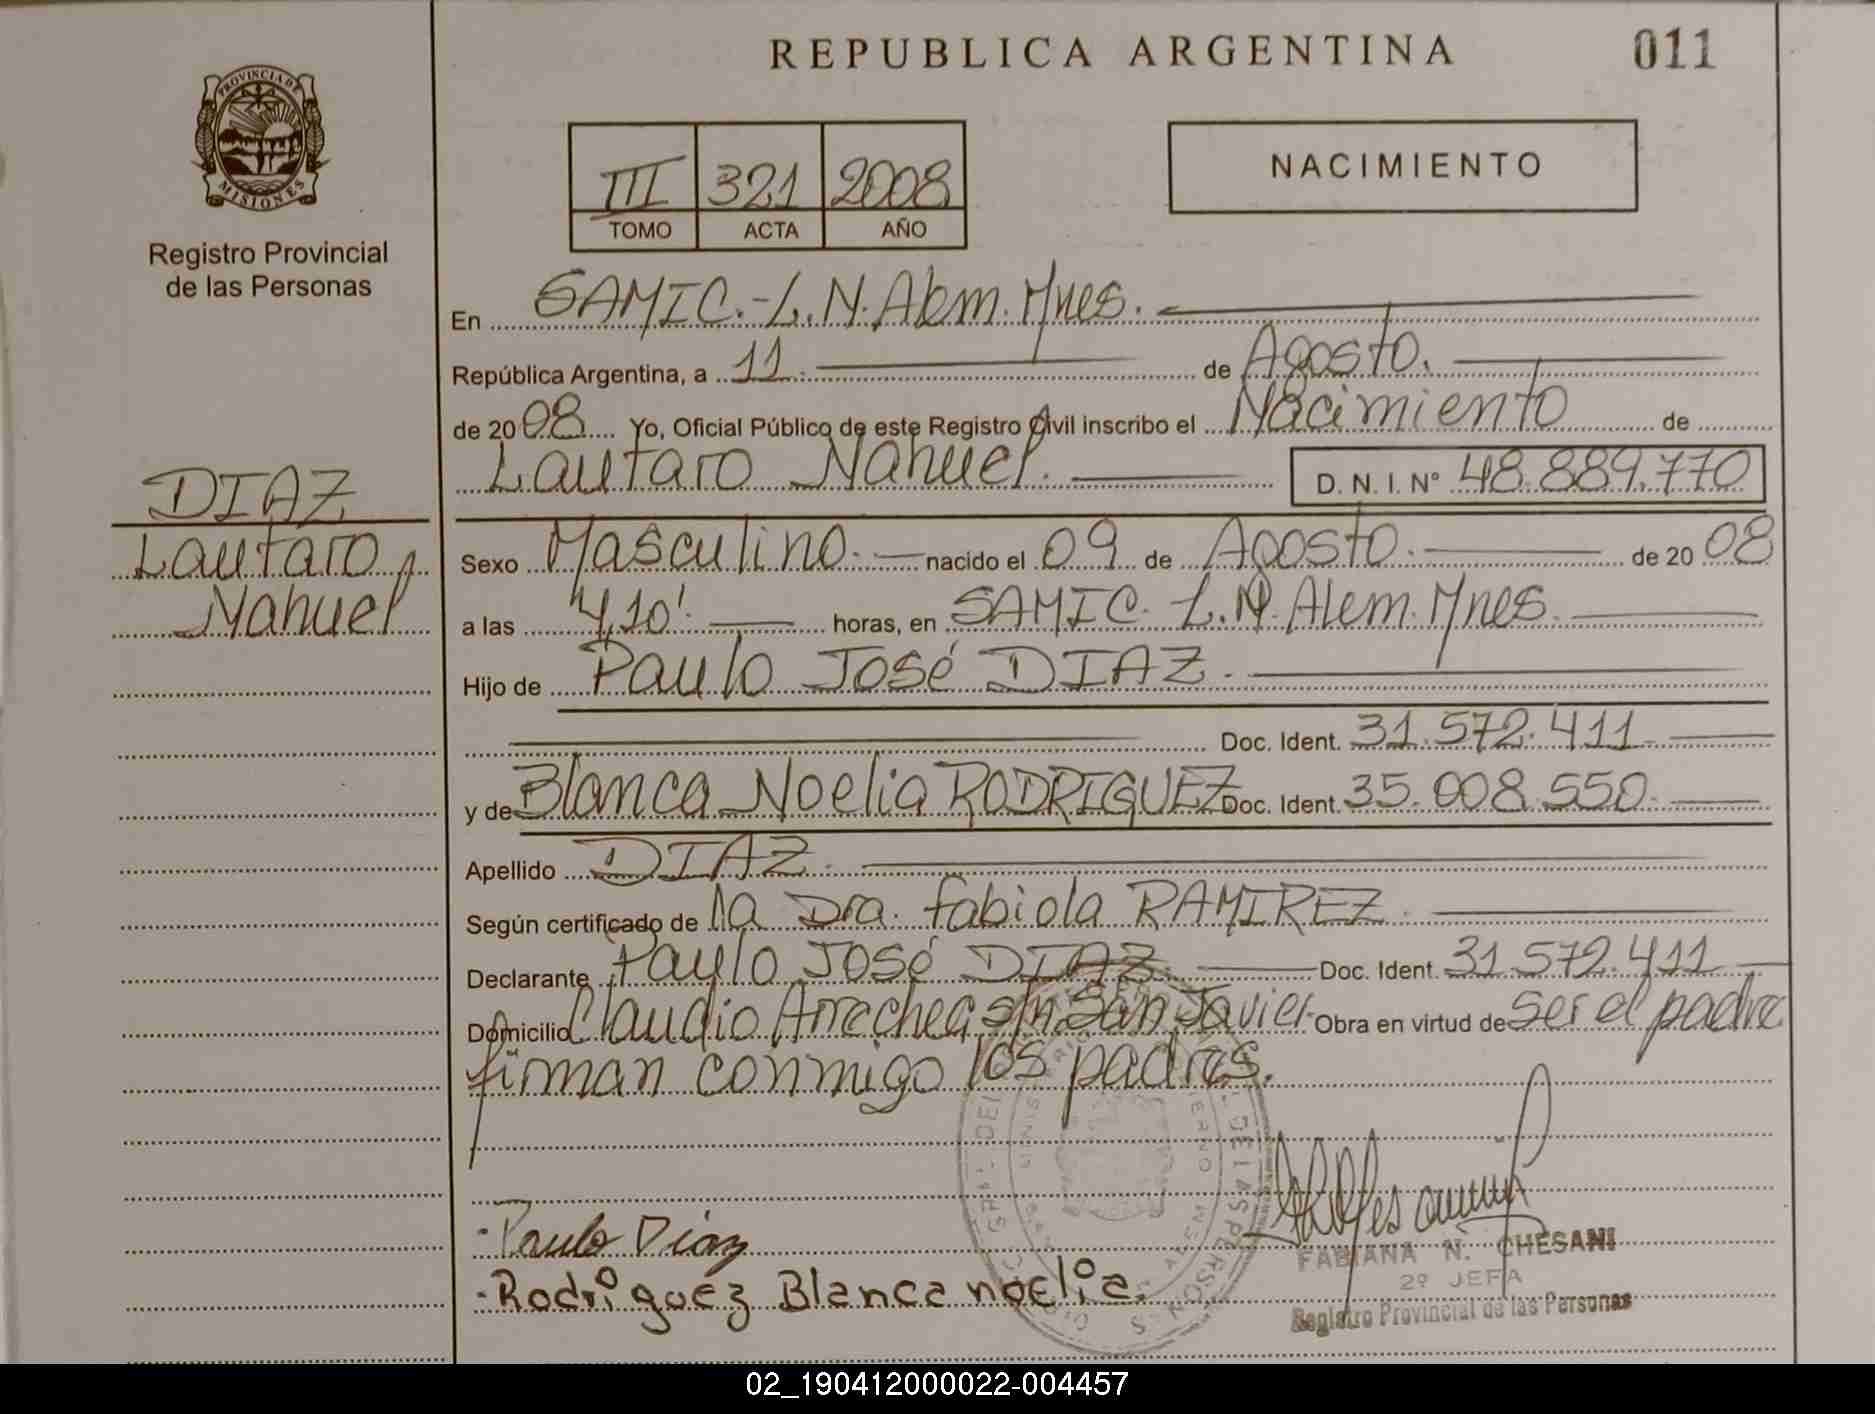 REPUBLICA ARGENTINA
011
PROVINCIA DE MISIONES
Registro Provincial
de las Personas
III 321 2008
TOMO ACTA AÑO
NACIMIENTO
En SAMIC.-L.N.Alem.Mnes.
República Argentina, a 11. de Agosto.
de 2008 Yo, Oficial Público de este Registro Civil inscribo el Nacimiento de
Lautaro Nahuel. D. N. I. Nº 48.889.770
DIAZ
Lautaro
Nahuel
Sexo Masculino. nacido el 09 de Agosto. de 2008
a las 4,10'. horas, en SAMIC. L.N. Alem. Mnes.
Hijo de Paulo José DIAZ.
Doc. Ident. 31.572.411
y de Blanca Noelia RODRIGUEZ Doc. Ident. 35.008.550.
Apellido DIAZ.
Según certificado de la Dra. Fabiola RAMIREZ.
Declarante Paulo José DIAZ. Doc. Ident. 31.572.411
Domicilio Claudio Arrechea s/n San Javier Obra en virtud de ser el padre
firman conmigo los padres.
Paulo Díaz
Rodriguez Blanca noelia.
FABIANA N. CHESANI
2º JEFA
Registro Provincial de las Personas
02_190412000022-004457